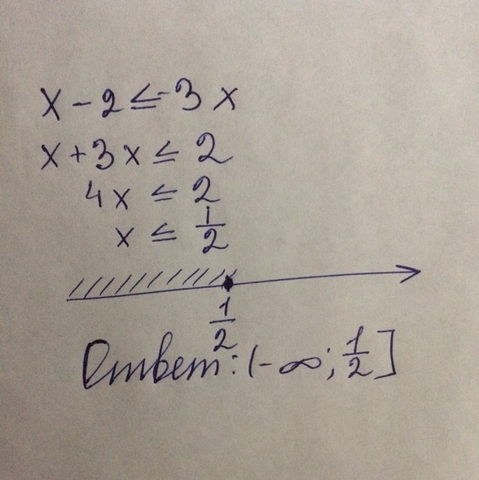 x - 2 ≤ -3x
x + 3x ≤ 2
4x ≤ 2
x ≤ 1/2
1/2
Ответ: (-∞; 1/2]